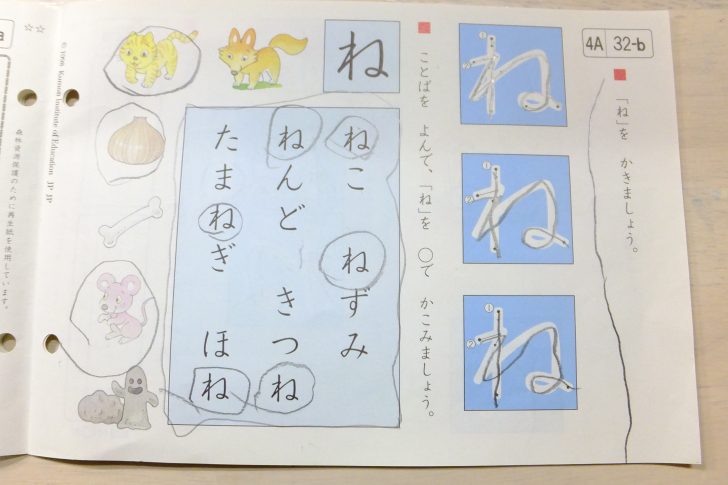 4A 32-b
「ね」を かきましょう。
ね
ね
ね
ことばを よんで、「ね」を ○で かこみましょう。
ね
ねこ ねずみ
ねんど きつね
たまねぎ ほね
© 1998 Kumon Institute of Education JP JP
☆☆
a
森林資源保護のために再生紙を使用しています。